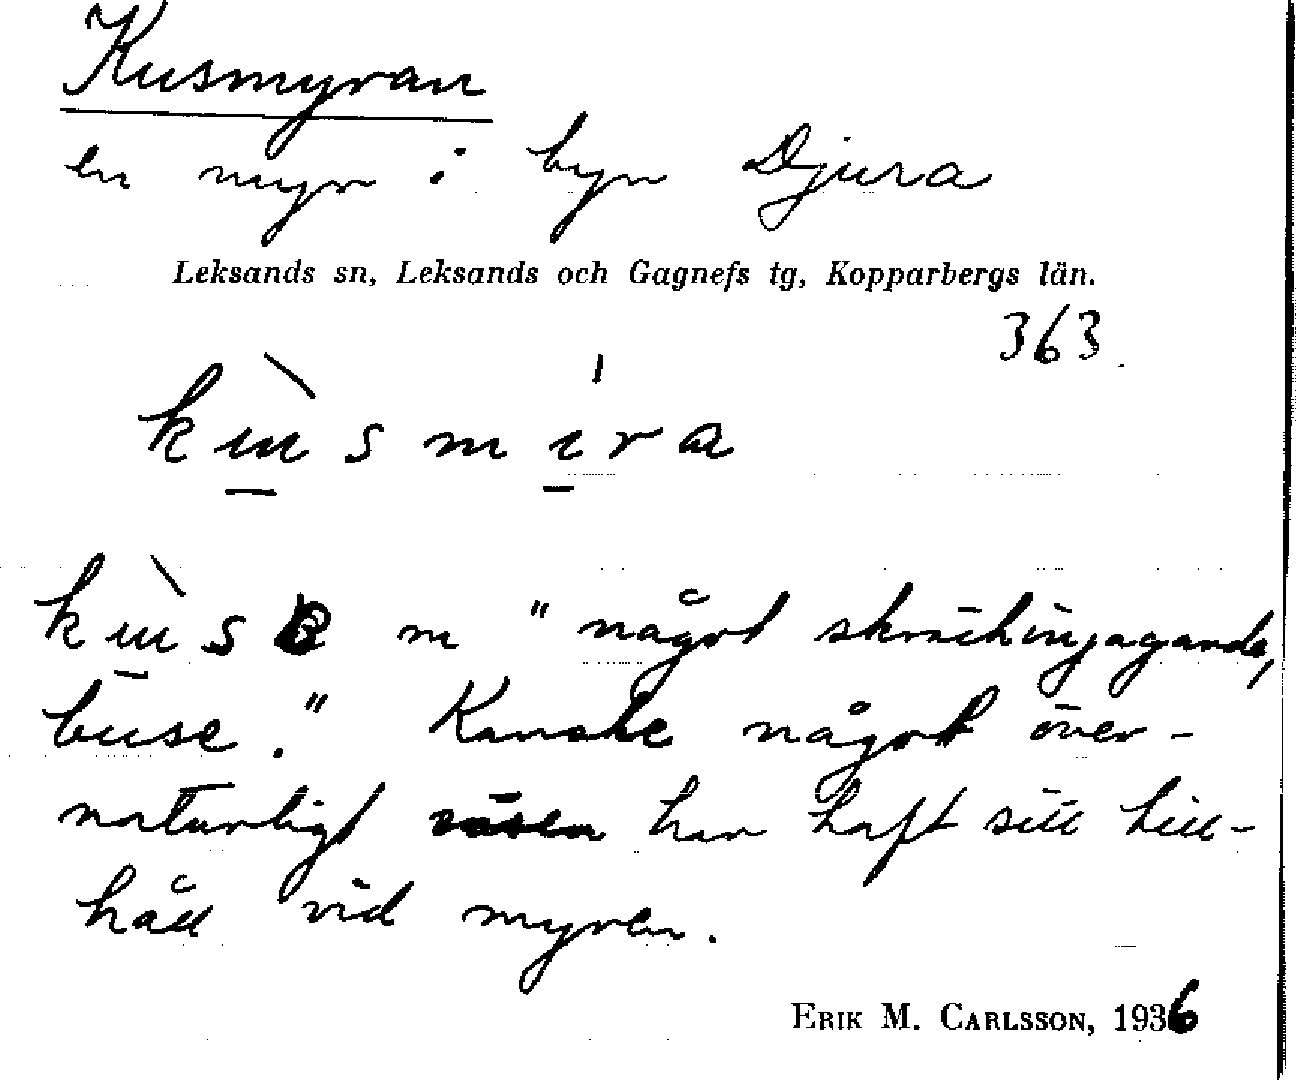 Kusmyran
en myr i byn Djura
Leksands sn, Leksands och Gagnefs tg, Kopparbergs län.
363
kùsmıra
kùse m "något skräckinjagande,
buse." Kanske något över-
naturligt väsen har haft sitt till-
håll vid myren.
ERIK M. CARLSSON, 1936